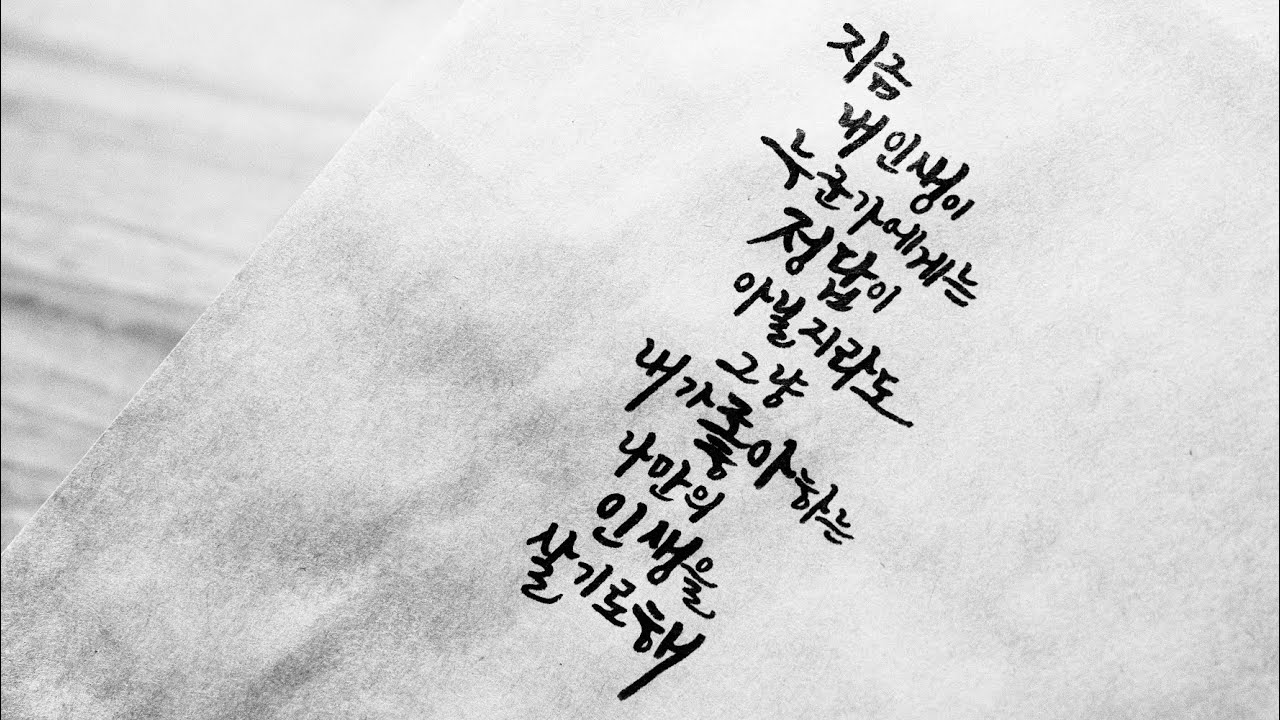 지금
내 인생이
누군가에게는
정답이
아닐지라도
그냥
내가 좋아하는
나만의
인생을
살기로 해